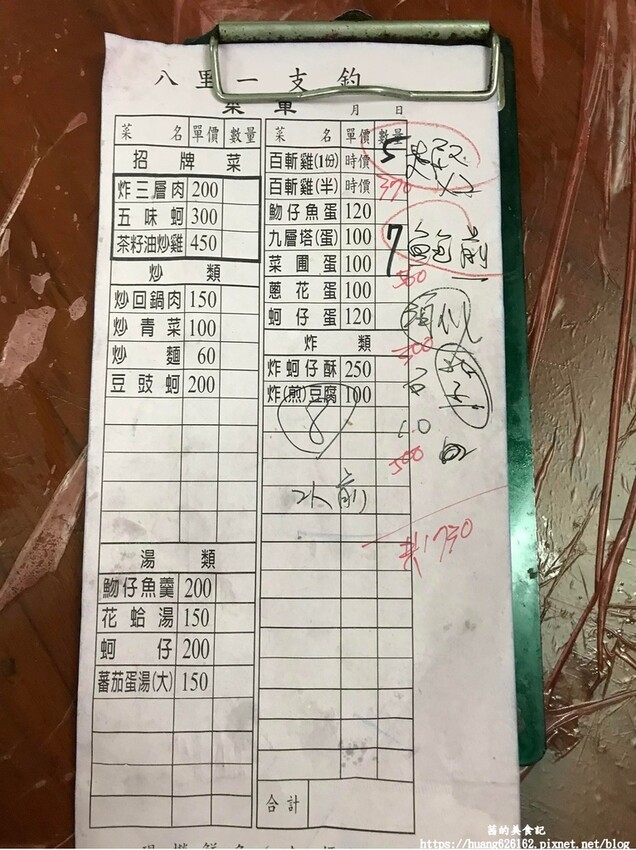 八里一支釣
菜單 月 日
菜名 單價 數量
招牌菜
炸三層肉 200
五味蚵 300
茶籽油炒雞 450
炒類
炒回鍋肉 150
炒青菜 100
炒麵 60
豆豉蚵 200
湯類
魩仔魚羹 200
花蛤湯 150
蚵仔 200
蕃茄蛋湯(大) 150
菜名 單價 數量
百斬雞(1份) 時價
百斬雞(半) 時價
魩仔魚蛋 120
九層塔(蛋) 100
菜圃蛋 100
蔥花蛋 100
蚵仔蛋 120
炸類
炸蚵仔酥 250
炸(煎)豆腐 100
8
合計
5
370
7
前
500
500
共1730
茜的美食記
https://huang626162.pixnet.net/blog